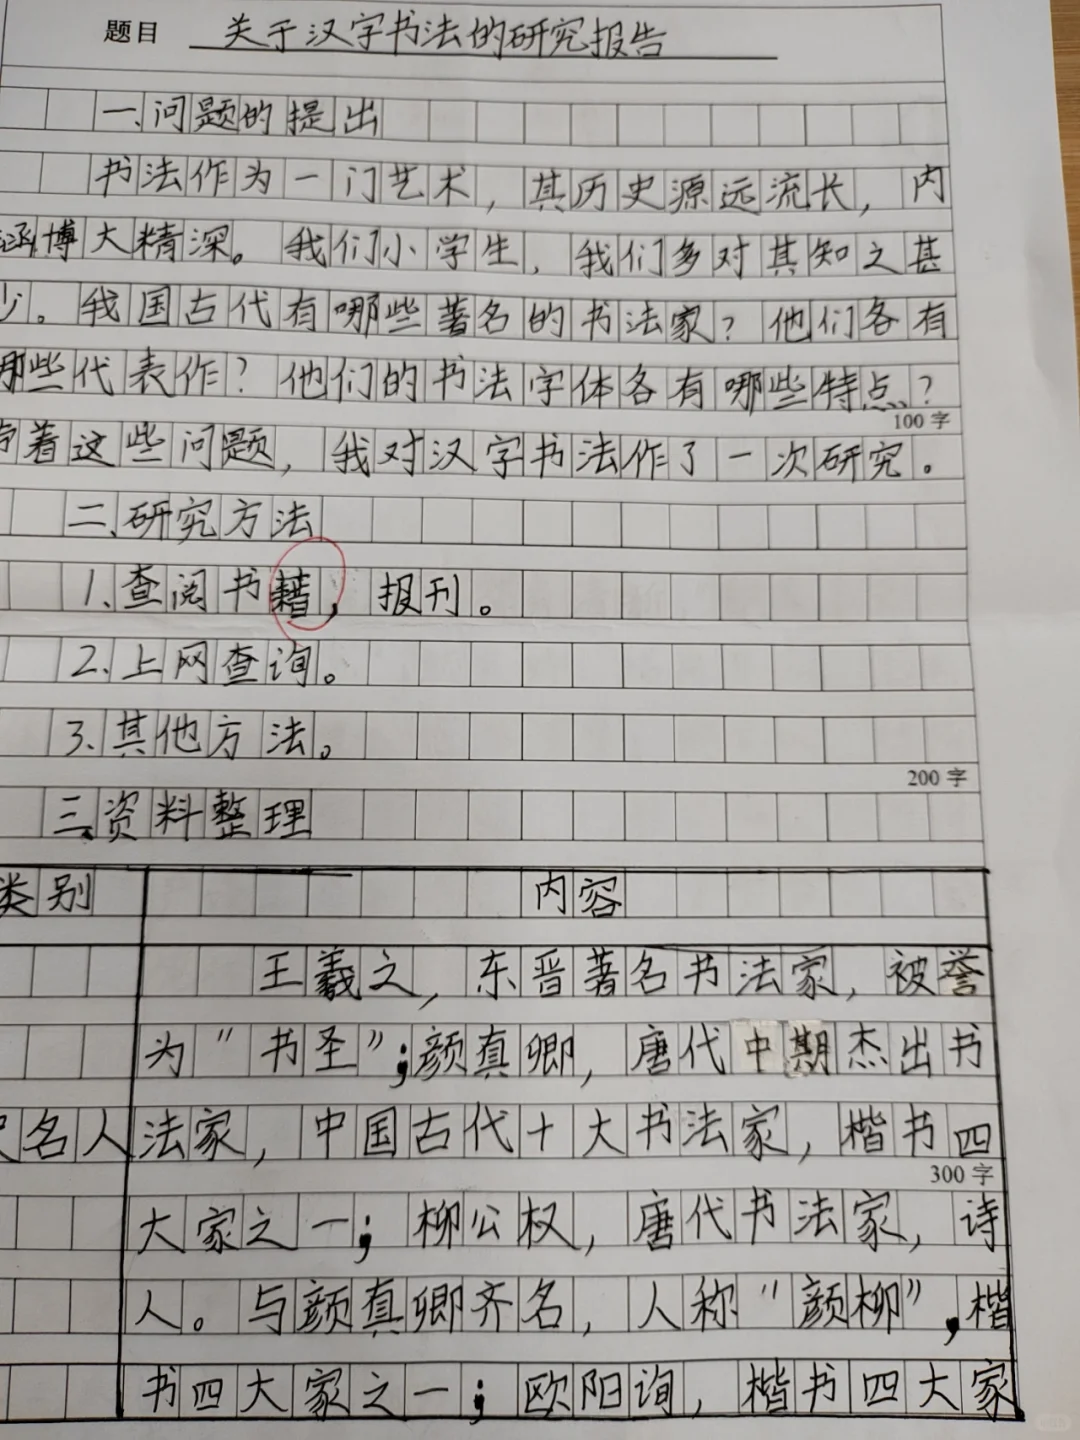 题目 关于汉字书法的研究报告
一、问题的提出
书法作为一门艺术，其历史源远流长，内
涵博大精深。我们小学生，我们多对其知之甚
少。我国古代有哪些著名的书法家？他们各有
哪些代表作？他们的书法字体各有哪些特点？
100字
带着这些问题，我对汉字书法作了一次研究。
二、研究方法
1、查阅书籍，报刊。
2、上网查询。
3、其他方法。
200字
三、资料整理
类别 内容
王羲之，东晋著名书法家，被誉
为“书圣”；颜真卿，唐代中期杰出书
名人 法家，中国古代十大书法家，楷书四
300字
大家之一；柳公权，唐代书法家，诗
人。与颜真卿齐名，人称“颜柳”，楷
书四大家之一；欧阳询，楷书四大家